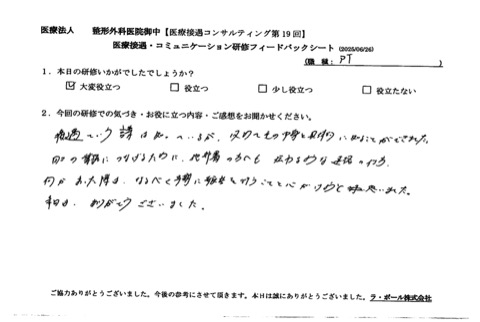 医療法人　整形外科医院御中【医療接遇コンサルティング第19回】
医療接遇・コミュニケーション研修フィードバックシート（2025/06/26）
（職 種：PT ）
1．本日の研修いかがでしたでしょうか？
☑ 大変役立つ　□ 役立つ　□ 少し役立つ　□ 役立たない
2．今回の研修での気づき・お役に立つ内容・ご感想をお聞かせください。
接遇という 言葉は知っているが、改めてその内容を具体的に知ることができました。
日々の業務につなげるために、他部署の方へも 伝わるような
何か あった際は、なるべく 早期に を行うことを心がけようと思いました。
本日は、ありがとうございました。
ご協力ありがとうございました。今後の参考にさせて頂きます。本日は誠にありがとうございました。ラ・ポール株式会社